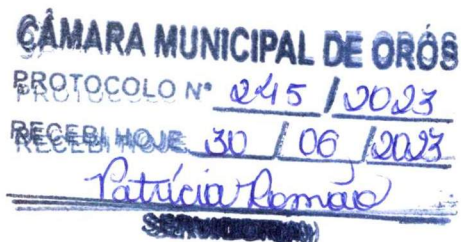 CÂMARA MUNICIPAL DE ORÓS
PROTOCOLO Nº 245 / 2023
RECEBI HOJE 30 / 06 / 2023
Patrícia Romão
SERVIDOR(A)